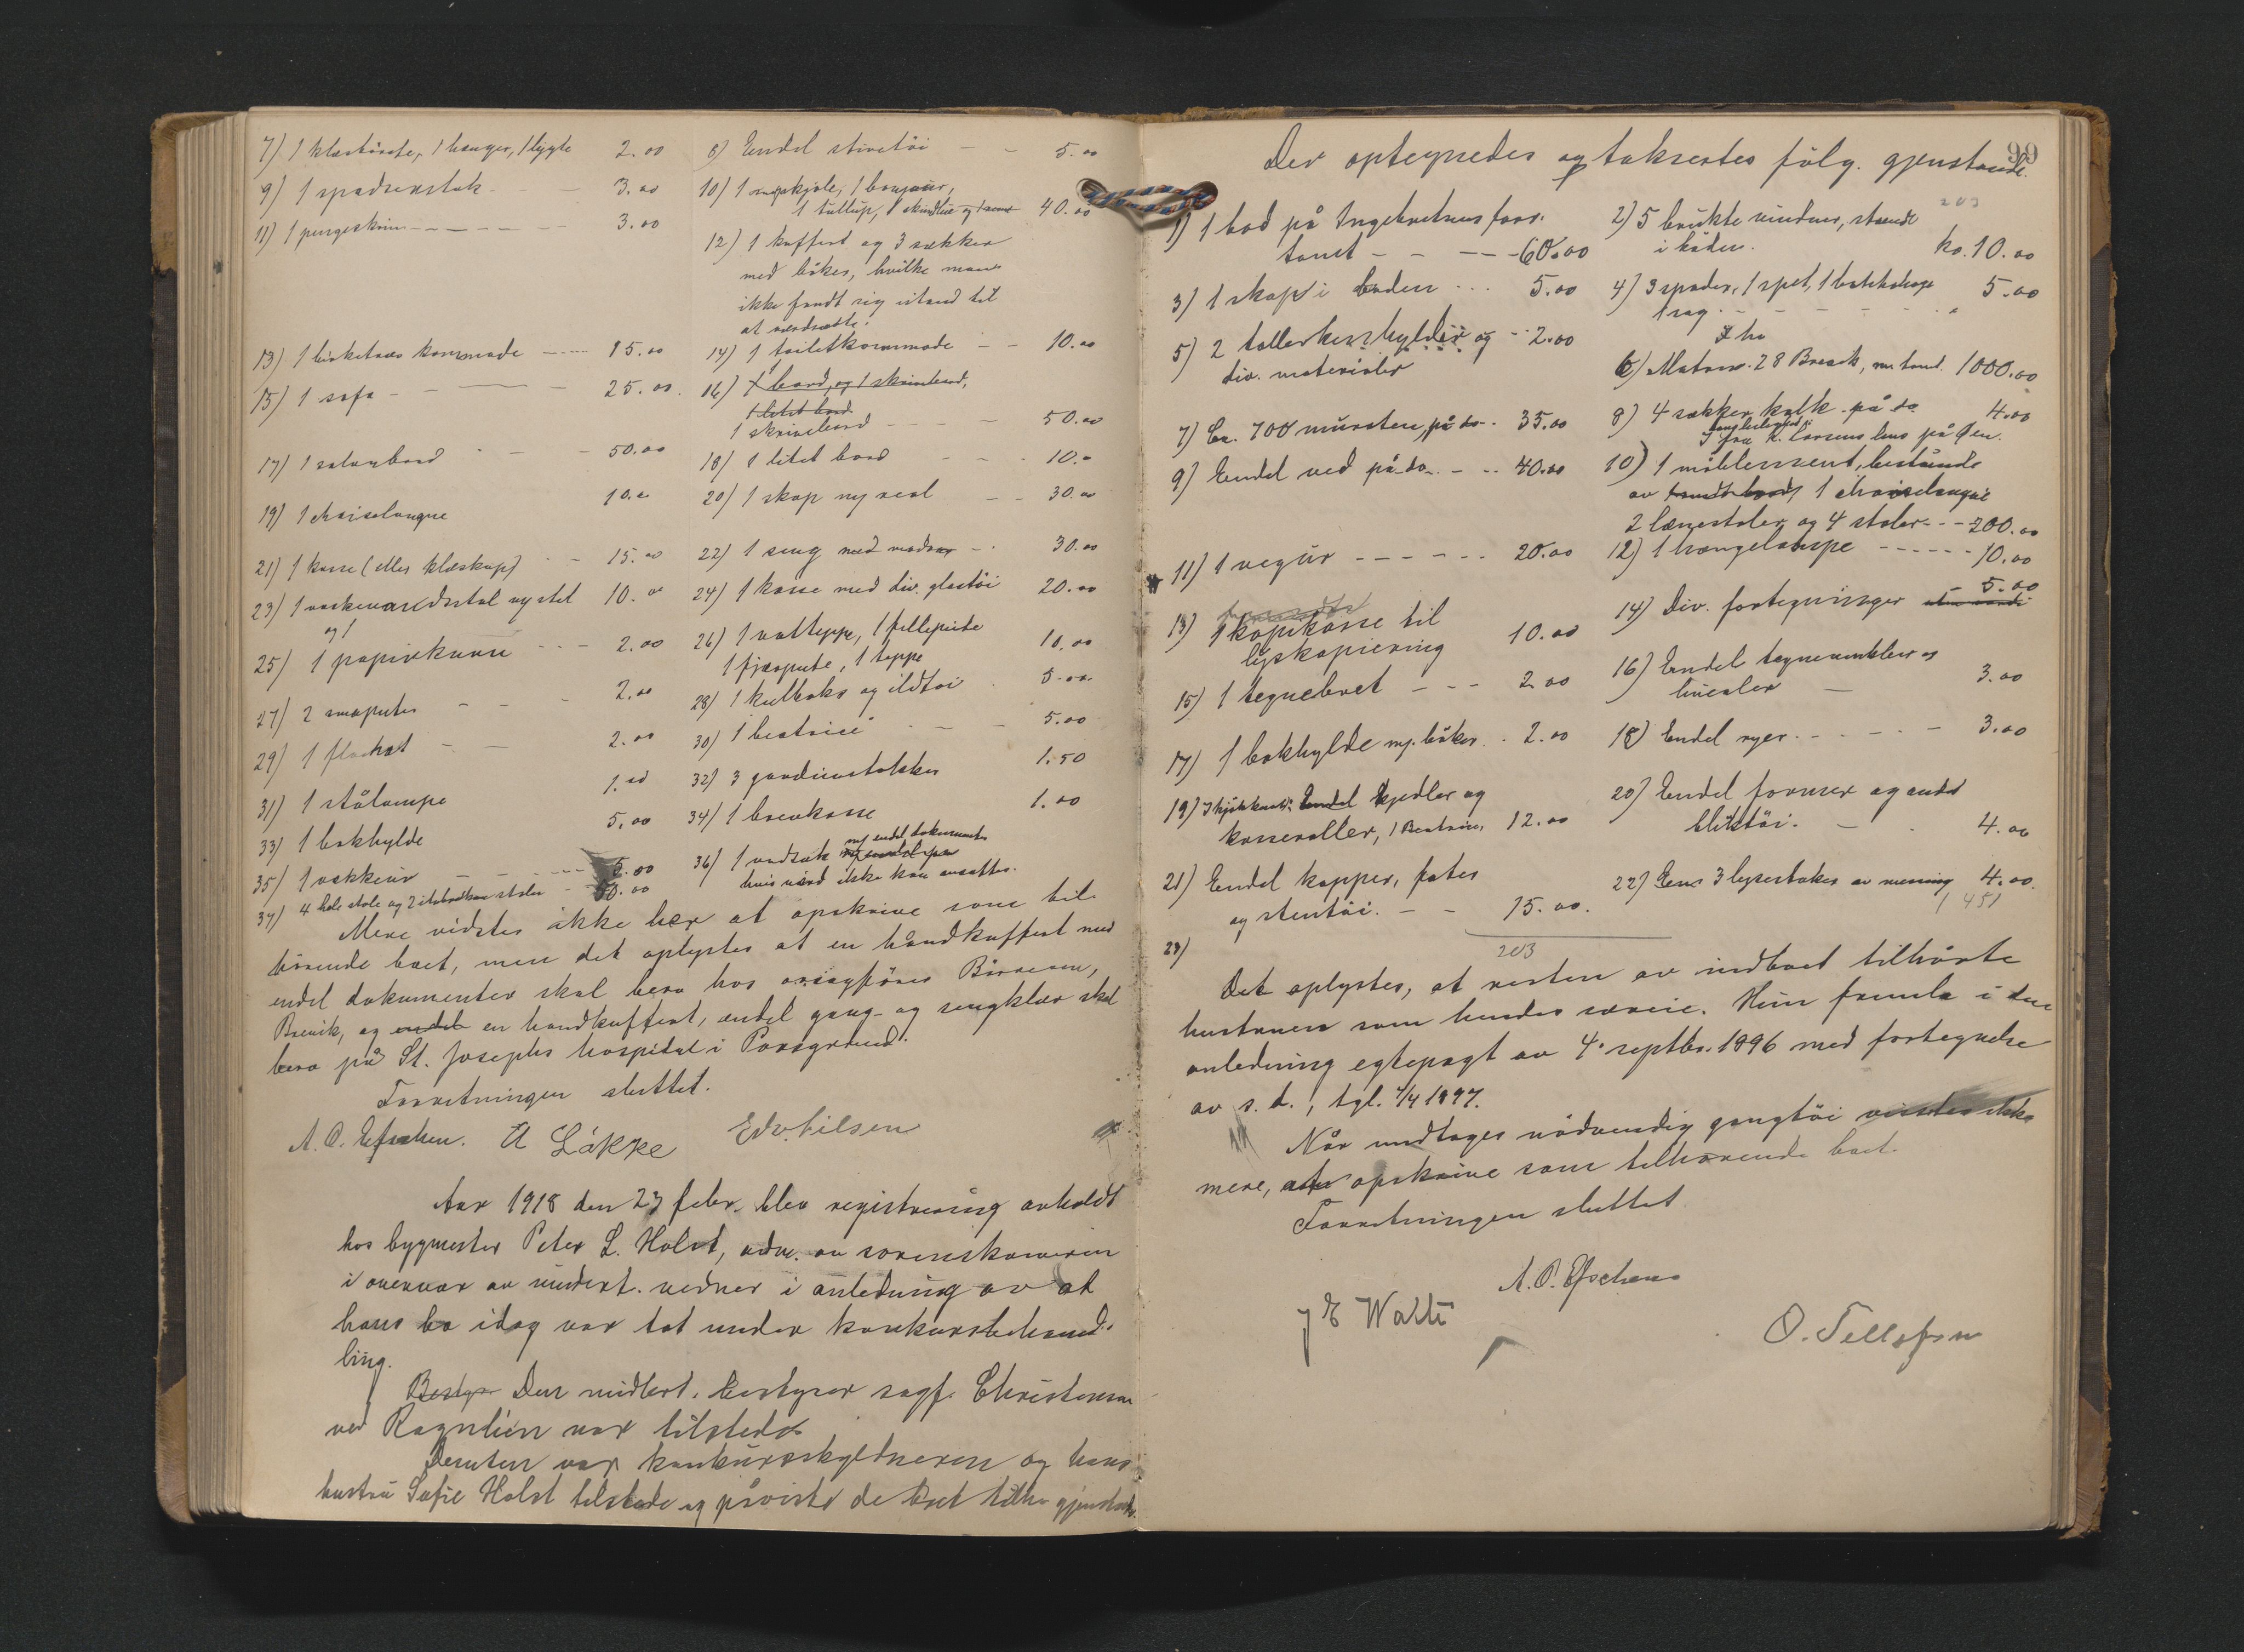 7) 1 klæstörste, 1 hænger, 1 lygte 2.00
8) Endel stivetöi - - 5.00
9) 1 spadserstok - - 3.00
10) 1 snipkjole, 1 bonjour,
1 tullup, 40.00
11) 1 pengeskrin - - - - 3.00
12) 1 kuffert og 3 sækker
med böker, hvilke man
ikke fandt sig istand til
at værdsætte.
13) 1 birketræs kommode - - 15.00
14) 1 toiletkommode - - 10.00
15) 1 sofa - - - 25.00
16) 1 bord, og 1 skrivebord,
1 litet bord
1 skrivebord - - - 50.00
17) 1 salonbord - - - 50.00
18) 1 litet bord - - - 10.-
19) 1 chaiselongue 10.00
20) 1 skap - - 30.00
21) 1 kasse (eller klæskap) - - 15.00
22) 1 seng med madras - - 30.00
23) 1 10.00
24) 1 kasse med div. glastöi 20.00
og 1
25) 1 papirkurv - - - 2.00
26) 1 vatteppe, 1 fillepute
1 fjærpute, 1 teppe 10.00
27) 2 smaputer - - - 2.00
28) 1 kulboks og ildtöi 5.00
29) 1 - - 2.00
30) 1 beatrice - - - 5.00
31) 1 stålampe 1.00
32) 3 gardinstokker 1.50
33) 1 bokhylde 5.00
34) 1 brevkasse 1.00
35) 1 vækkeur - - - 5.00
36) 1 vadsæk m/ endel dokumenter
hvis værd ikke kan ansættes.
37) 4 hele stole og 2 istykker stoler - 50.00
Mere vidstes ikke her at opskrive som til-
hörende boet, men det oplystes at en håndkuffert med
endel dokumenter skal bero hos orsagförer Börresen,
Brevik, og endel en handkuffert, endel gang- og sengklær skal
bero på St. Josephs hospital i Porsgrund.
Forretningen sluttet.
A. O. Efschen. A Løkke Edv. Nilsen
Aar 1918 den 23 febr. blev registrering avholdt
hos bygmester Peter L. Holst, adm. av sorenskriveren
i overvær av undert. vidner i anledning av at
hans bo idag var tat under konkursbehand-
ling.
Bestyr Den midlert. bestyrer sagf. Christensen
ved Ragnlien var tilstede
Desuten var konkursskyldneren og hans
hustru Sofie Holst tilstede og påviste de boet tilhør. gjenstande.
99
Der optegnedes og taksertes fölg. gjenstande.
203
1) 1 bod på Ingebretsens for-
tauet - - - - 60.00
2) 5 brukte vinduer, stående
i boden. kr. 10.00
3) 1 skap i boden ... 5.00
4) 3 spader, 1 spet,
1 sag - - - - 5.00
5) 2 tallerkenhylder og - - 2.00
div. materialer
6) 1000.00
7) Ca. 700 mursten, på do. - 35.00
8) 4 sækker kalk på do 4.00
9) Endel ved på do. - - - 40.00
I fru K. Larsens hus på Öen.
10) 1 möblement, bestående
av 1 chaiselongue
2 lænestoler og 4 stoler - - - 200.00
11) 1 vegur - - - - - 20.00
12) 1 hængelampe - - - - - 10.00
13) 1 kopikasse til
lyskopiering 10.00
14) Div. fortegninger 5.00
15) 1 tegnebret - - - 2.00
16) Endel tegnevinkler og
linealer - 3.00
17) 1 bokhylde m/. böker - 2.00
18) Endel ryer - - - - 3.00
19) I kjøkkenet: Endel kjedler og
kasseroller, 1 Beatrice, 12.00
20) Endel former og andet
bliktöi. - - 4.00
21) Endel kopper, fater
og stentöi. - - 15.00.
22) 3 lysestaker av messing 4.00.
1451
203
23)
Det oplystes, at resten av indboet tilhörte
hustruen som hendes særeie. Hun fremla i den
anledning egtepagt av 4. septbr. 1896 med fortegnelse
av s. d., tgl. 7/4 1897.
Når undtages nödvendig gangtöi visstes ikke
mere, at opskrive som tilhørende boet.
Forretningen sluttet
A. O. Efschen
J E Walte
O. Tellefsen